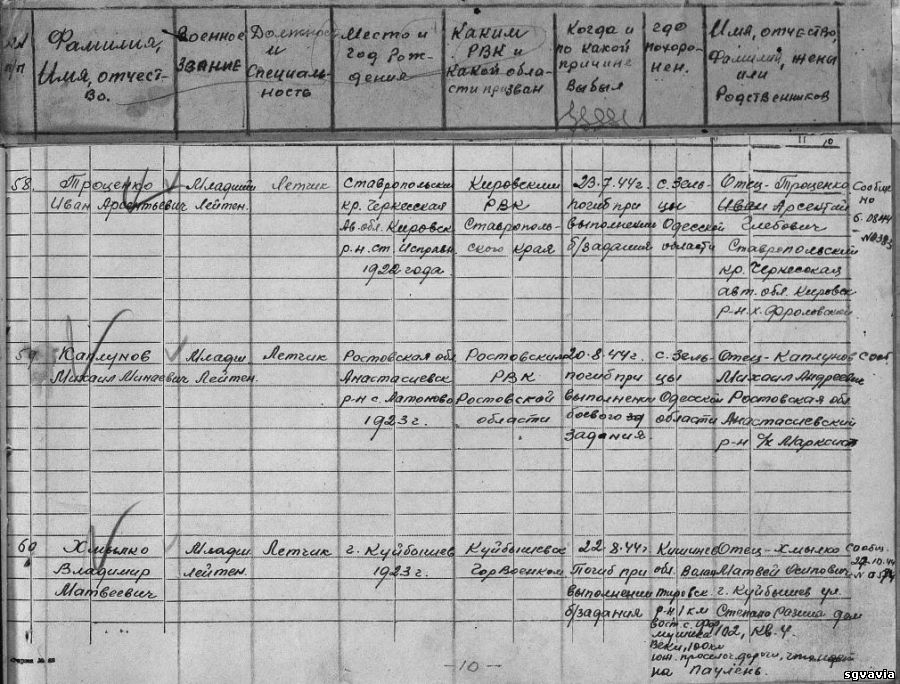 №№ п/п
Фамилия,
Имя, отчест-
во.
Военное
звание
Должность
и
Специаль-
ность
Место и
год рож-
дения
Каким
РВК и
какой обла-
сти призван
Когда и
по какой
причине
выбыл
где
похоро-
нен.
Имя, отчество,
Фамилия, жены
или
Родственников
58.
Троценко
Иван Арсентьевич
Младший
Лейтен.
Летчик
Ставропольский
кр. Черкесская
Ав. обл. Кировск
р-н. ст. Исправн
1922 года.
Кировским
РВК
Ставрополь-
ского края
23.7.44г.
погиб при
выполнении
б/задания
с. Зель-
цы
Одесской
области
Отец-Троценко
Иван Арсентий
Глебович
Ставропольский
кр. Черкесская
авт. обл. Кировск
р-н. х. Фроловский
Сообще
но
6.0844
59.
Каплунов
Михаил Минаевич
Младш
Лейтен.
Летчик
Ростовская обл
Анастасиевск
р-н с. Латоново
1923г.
Ростовским
РВК
Ростовской
области
20.8.44г.
погиб при
выполнении
боевого за
задания.
с. Зель-
цы
Одесской
области
Отец-Каплунов
Михаил Андреевич
Ростовская обл
Анастасиевский
р-н с/х Марксист
Сооб
60
Хмылко
Владимир
Матвеевич
Младш
Лейтен.
Летчик
г. Куйбышев
1923г.
Куйбышевск
ГорВоенком
22.8.44г
Погиб при
выполнении
б/задания
Кишинев
обл.
р-н 1 км
вост. с.
юж. просёлоч. дороги,
на Паулень.
Отец-Хмылко
Матвей Осипович
г. Куйбышев ул.
Степана Разина дом
102, кв. 4.
Сообщ.
27.10.44
Форма №
-10-
sgvavia